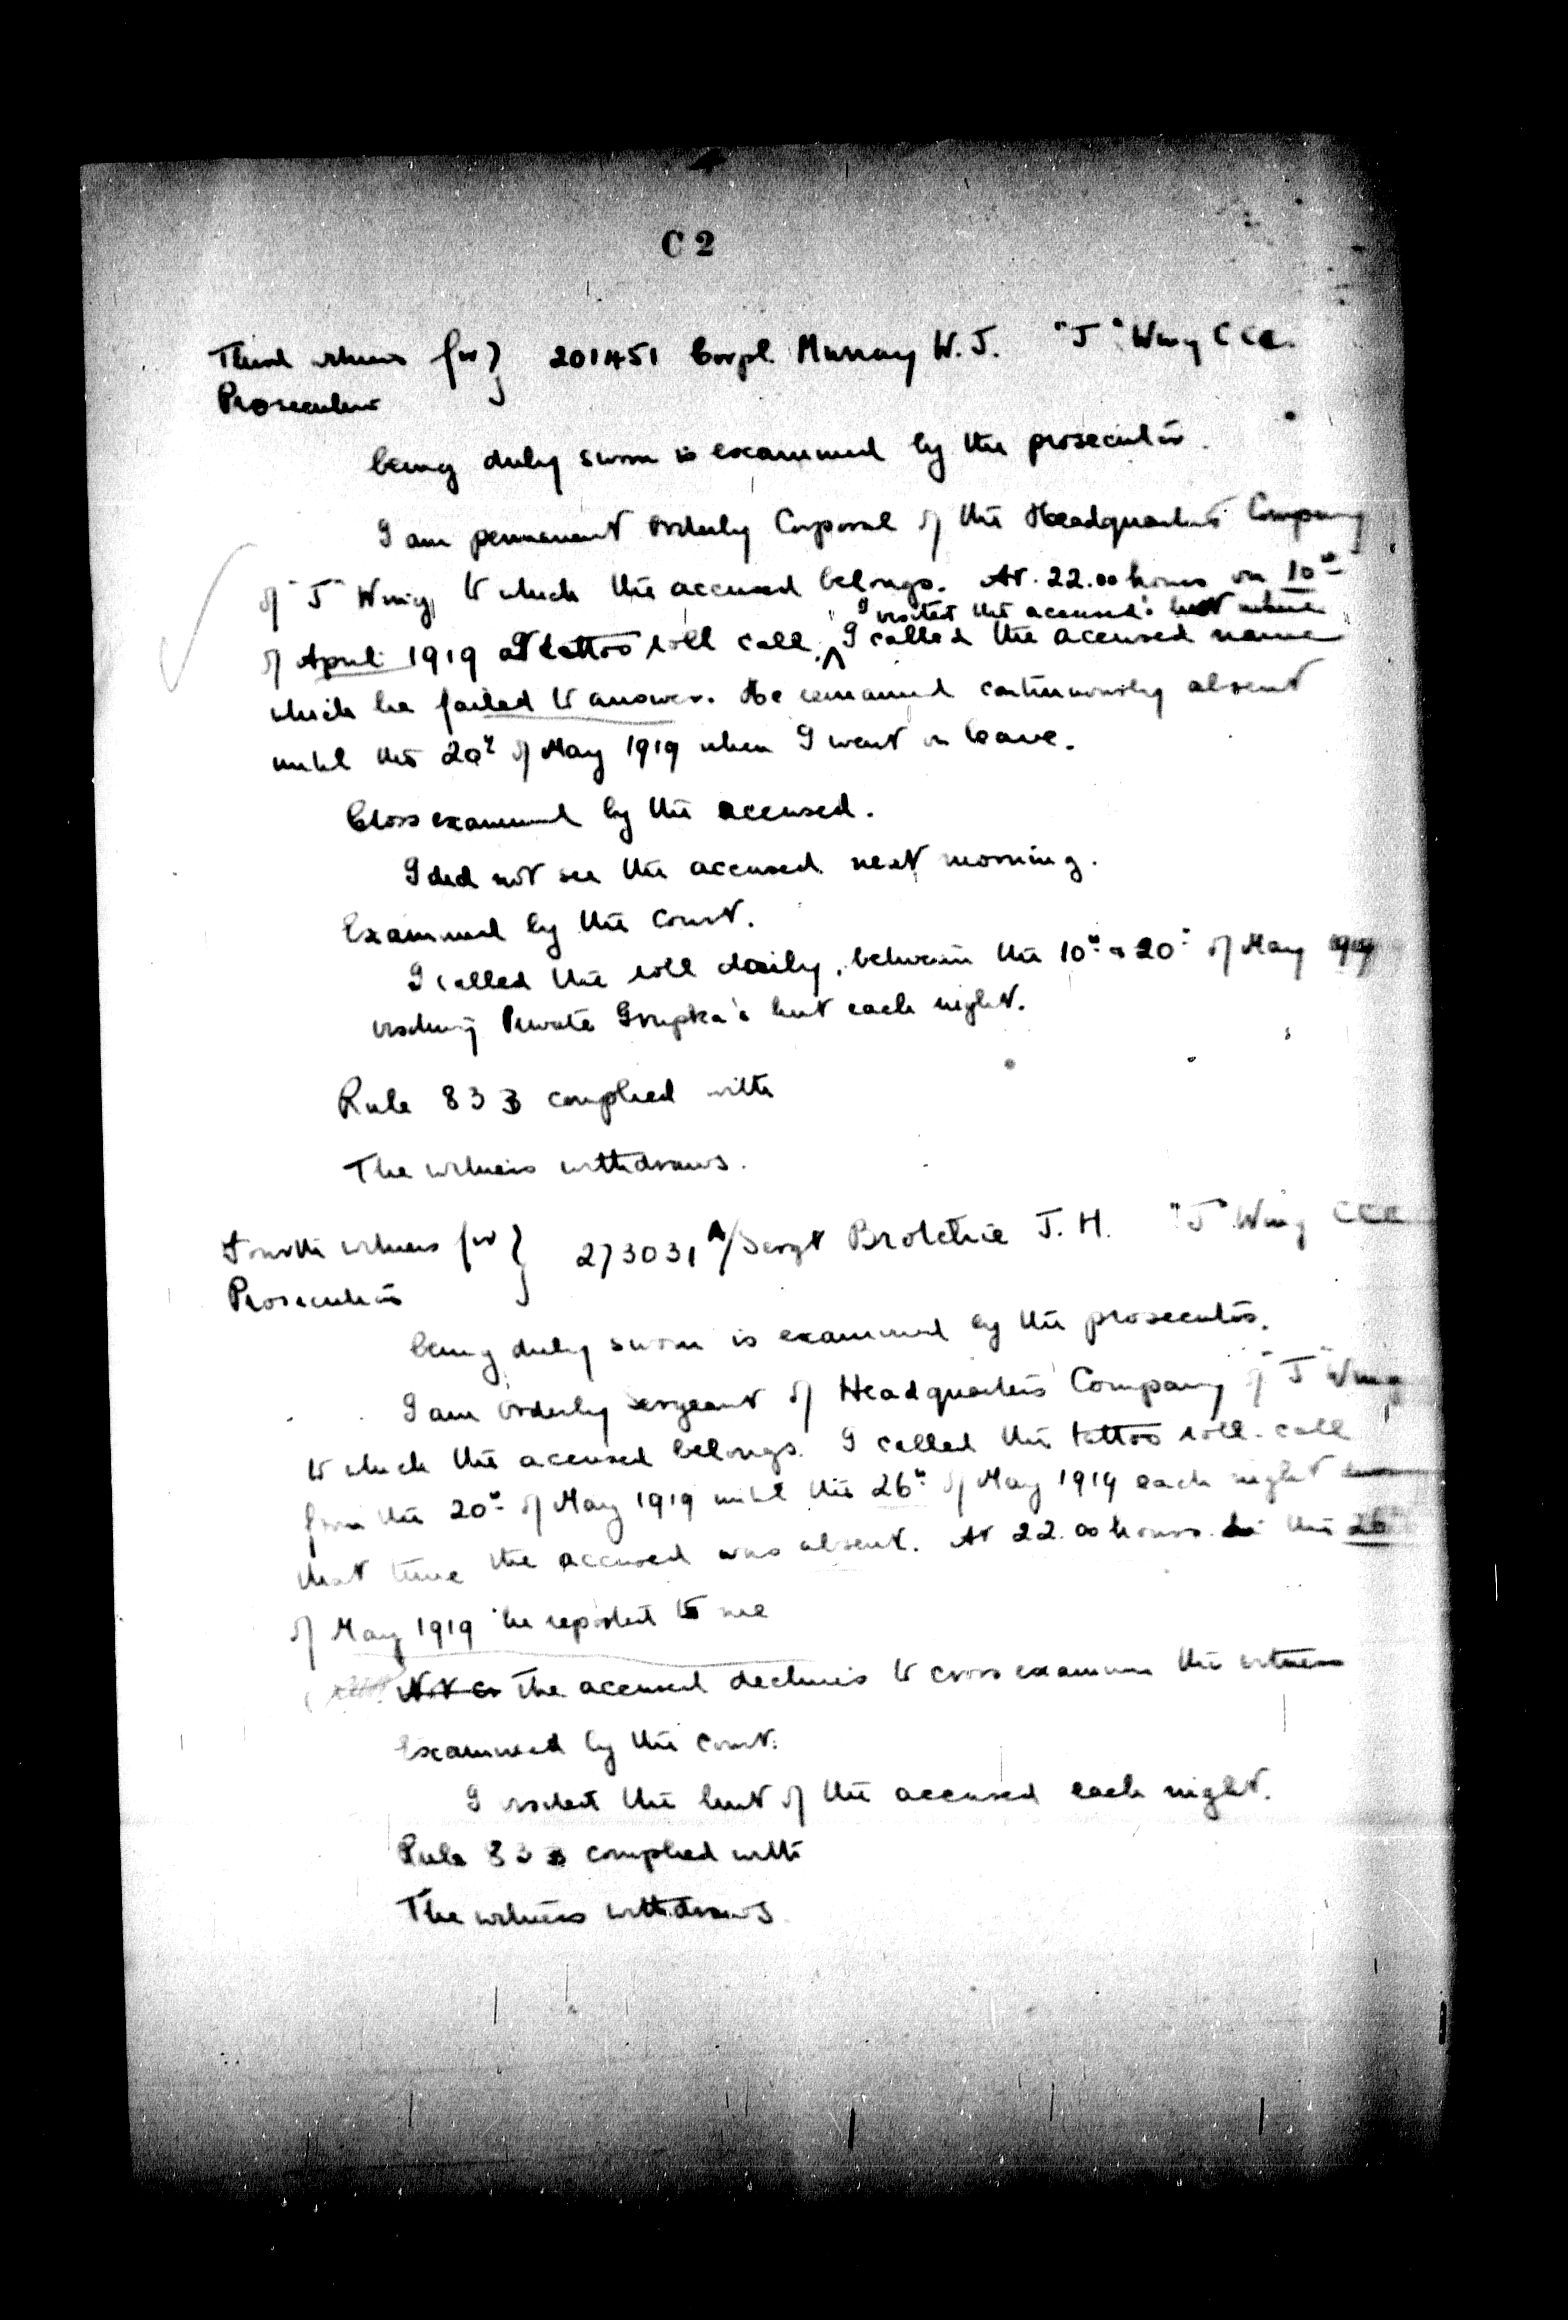 C 2
Third witness for } 201451 Corpl. Murray W. J. "J" Wing C C C.
Prosecution
being duly sworn is examined by the prosecutor.
I am permanent orderly Corporal of the Headquarters Company
of "J" Wing, to which the accused belongs. At 22.00 hours on 10th
I visited the accused's hut where
of April 1919 at tattoo roll call. ^ I called the accused name
which he failed to answer. He remained continuously absent
until the 20th of May 1919 when I went on leave.
Cross examined by the accused.
I did not see the accused next morning.
Examined by the Court.
I called the roll daily, between the 10th & 20th of May 1919
visiting Private Grupka's hut each night.
Rule 83 B complied with
The witness withdraws.
Fourth witness for } 273031 A/Sergt Brotchie J. H. "J" Wing C C C
Prosecution
being duly sworn is examined by the prosecutor.
I am orderly sergeant of Headquarters Company of "J" Wing
to which the accused belongs. I called the tattoo roll-call
from the 20th of May 1919 until the 26th of May 1919 each night
that time the accused was absent. At 22.00 hours the 26th
of May 1919 he reported to me
The accused declines to cross examine the witness
Examined by the Court.
I visited the hut of the accused each night.
Rule 83 B complied with
The witness withdraws